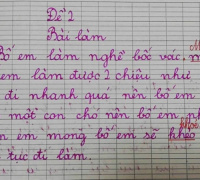 Đề 2
Bài làm
Bố em làm nghề bốc vác,
em làm được 2 chiệu như
đi nhanh quá nên bố em
một con cho nên bố em
em mong bố em sẽ khỏe
tục đi làm.